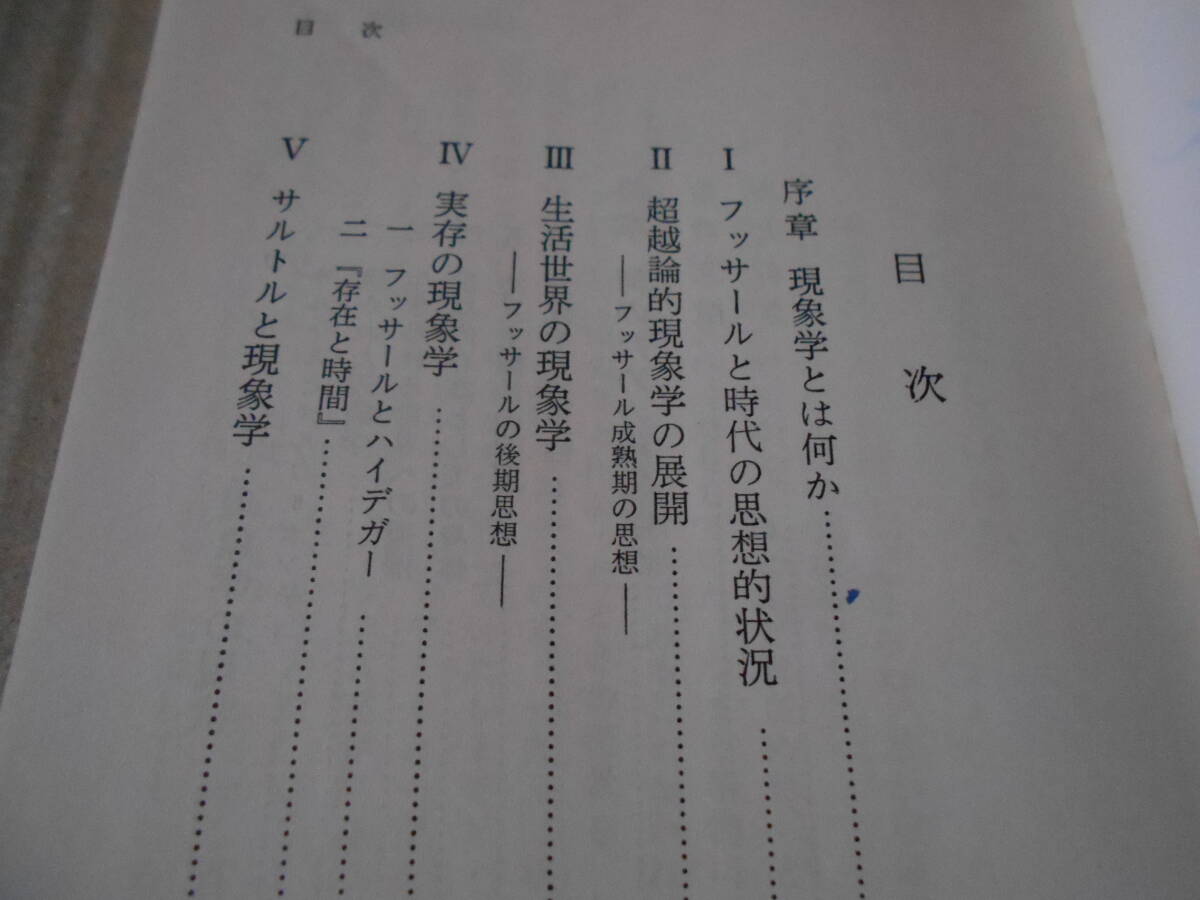 目次
目次
序章 現象学とは何か
I フッサールと時代の思想的状況
II 超越論的現象学の展開
――フッサール成熟期の思想――
III 生活世界の現象学
――フッサールの後期思想――
IV 実存の現象学
一 フッサールとハイデガー
二 『存在と時間』
V サルトルと現象学